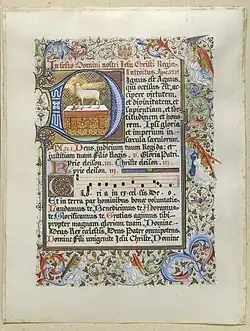 In festo Domini nostri Jesu Christi Regis
Introitus. Apoc. 5.
Dignus est Agnus,
qui occisus est, ac-
cipere virtutem,
et divinitatem, et
sapientiam, et for-
titudinem et hono-
rem. Ipsi gloria
et imperium in
sæcula sæculorum.
Ps. 71. Deus, judicium tuum Regi da: et
justitiam tuam Filio Regis. V. Gloria Patri.
Kyrie eleison. iij. Christe eleison. iij.
Kyrie eleison. iij.
Gloria in excelsis Deo.
Et in terra pax hominibus bonæ voluntatis.
Laudamus te. Benedicimus te. Adoramus
te. Glorificamus te. Gratias agimus tibi
propter magnam gloriam tuam. Domine
Deus Rex cælestis, Deus Pater omnipotens.
Domine Fili unigenite Jesu Christe. Domine